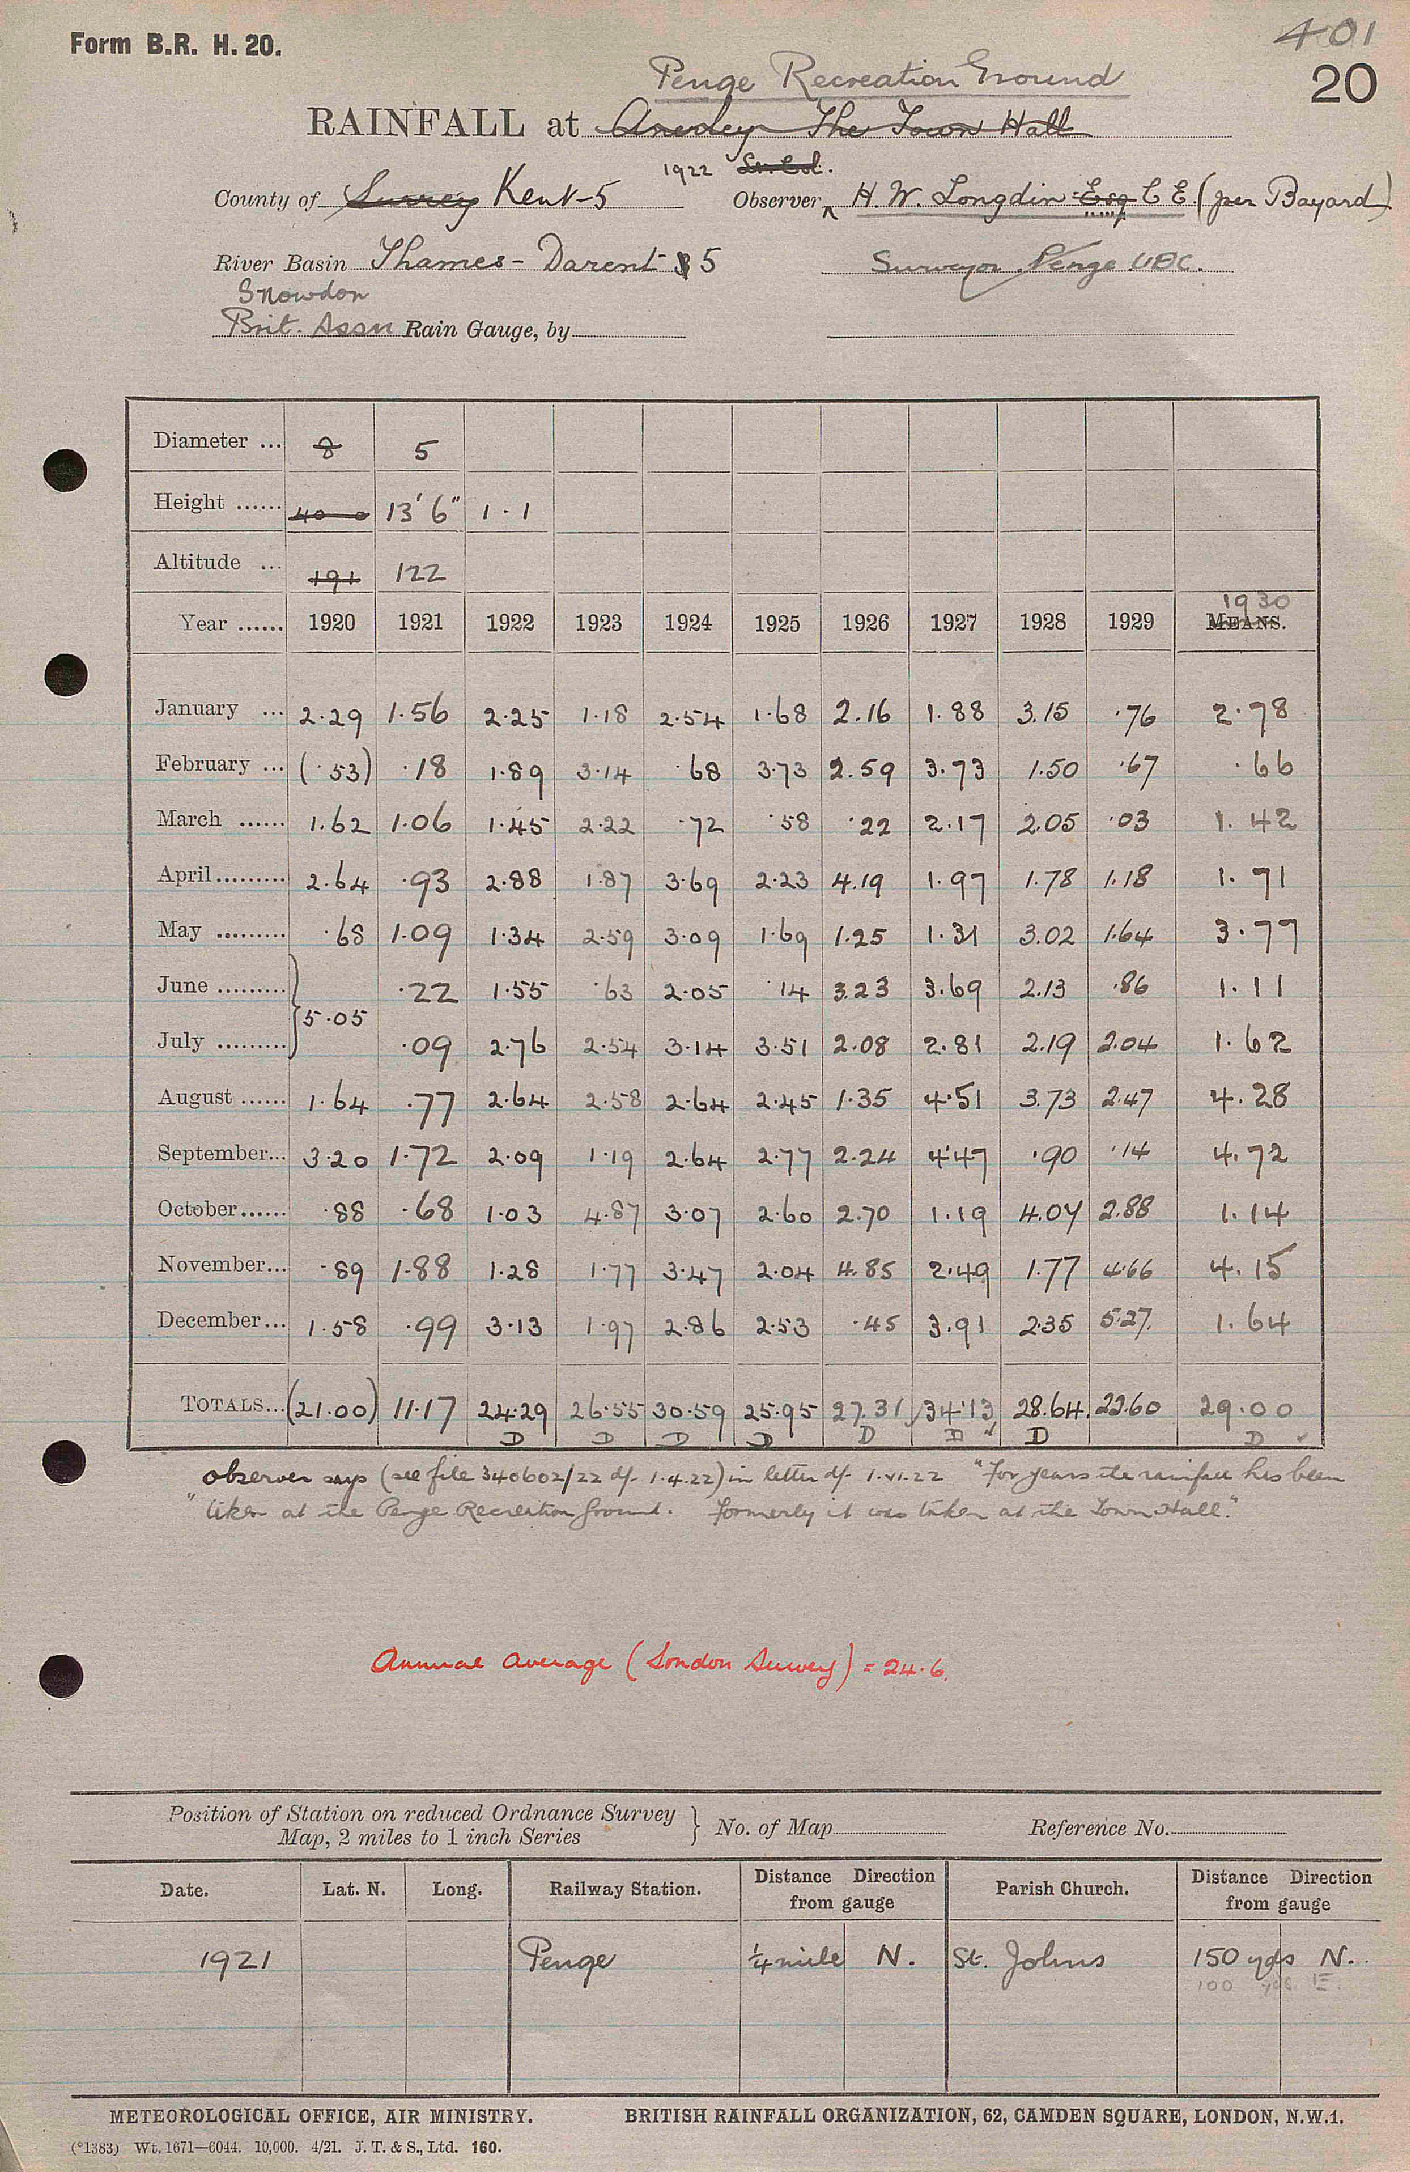 Form B.R. H. 20.
401
20
Penge Recreation Ground
RAINFALL at Anerley The Town Hall
1922
County of Surrey Kent-5 Observer H. W. Longdin Esq C E (per Bayard)
River Basin Thames - Darent 5 Surveyor Penge UDC.
Snowdon
Brit. Assn Rain Gauge, by
Diameter ... 8 5
Height ...... 40-0 13' 6" 1-1
Altitude ... 191 122
1930
Year ...... 1920 1921 1922 1923 1924 1925 1926 1927 1928 1929 MEANS.
January ... 2.29 1.56 2.25 1.18 2.54 1.68 2.16 1.88 3.15 .76 2.78
February ... (.53) .18 1.89 3.14 .68 3.73 2.59 3.73 1.50 .67 .66
March ...... 1.62 1.06 1.45 2.22 .72 .58 .22 2.17 2.05 .03 1.42
April ......... 2.64 .93 2.88 1.87 3.69 2.23 4.19 1.97 1.78 1.18 1.71
May ......... .68 1.09 1.34 2.59 3.09 1.69 1.25 1.31 3.02 1.64 3.77
June ......... .22 1.55 .63 2.05 .14 3.23 3.69 2.13 .86 1.11
5.05
July ......... .09 2.76 2.54 3.14 3.51 2.08 2.81 2.19 2.04 1.62
August ...... 1.64 .77 2.64 2.58 2.64 2.45 1.35 4.51 3.73 2.47 4.28
September... 3.20 1.72 2.09 1.19 2.64 2.77 2.24 4.47 .90 .14 4.72
October...... .88 .68 1.03 4.87 3.07 2.60 2.70 1.19 4.07 2.88 1.14
November... .89 1.88 1.28 1.77 3.47 2.04 4.85 2.49 1.77 4.66 4.15
December... 1.58 .99 3.13 1.97 2.86 2.53 .45 3.91 2.35 5.27 1.64
TOTALS... (21.00) 11.17 24.29 26.55 30.59 25.95 27.31 34.13 28.64 22.60 29.00
D D D D D D D D
observer says (see file 340602/22 df. 1.4.22) in letter df. 1.VI.22 "For years the rainfall has been
"taken at the Penge Recreation Ground. Formerly it was taken at the Town Hall."
Annual average (London Survey) = 24.6.
Position of Station on reduced Ordnance Survey
Map, 2 miles to 1 inch Series } No. of Map Reference No.
Date. Lat. N. Long. Railway Station. Distance Direction from gauge Parish Church. Distance Direction from gauge
1921 Penge ¼ mile N. St. Johns 150 yds N.
100 yds E.
METEOROLOGICAL OFFICE, AIR MINISTRY. BRITISH RAINFALL ORGANIZATION, 62, CAMDEN SQUARE, LONDON, N.W.1.
(*1383) Wt. 1671—6044. 10,000. 4/21. J. T. & S., Ltd. 160.